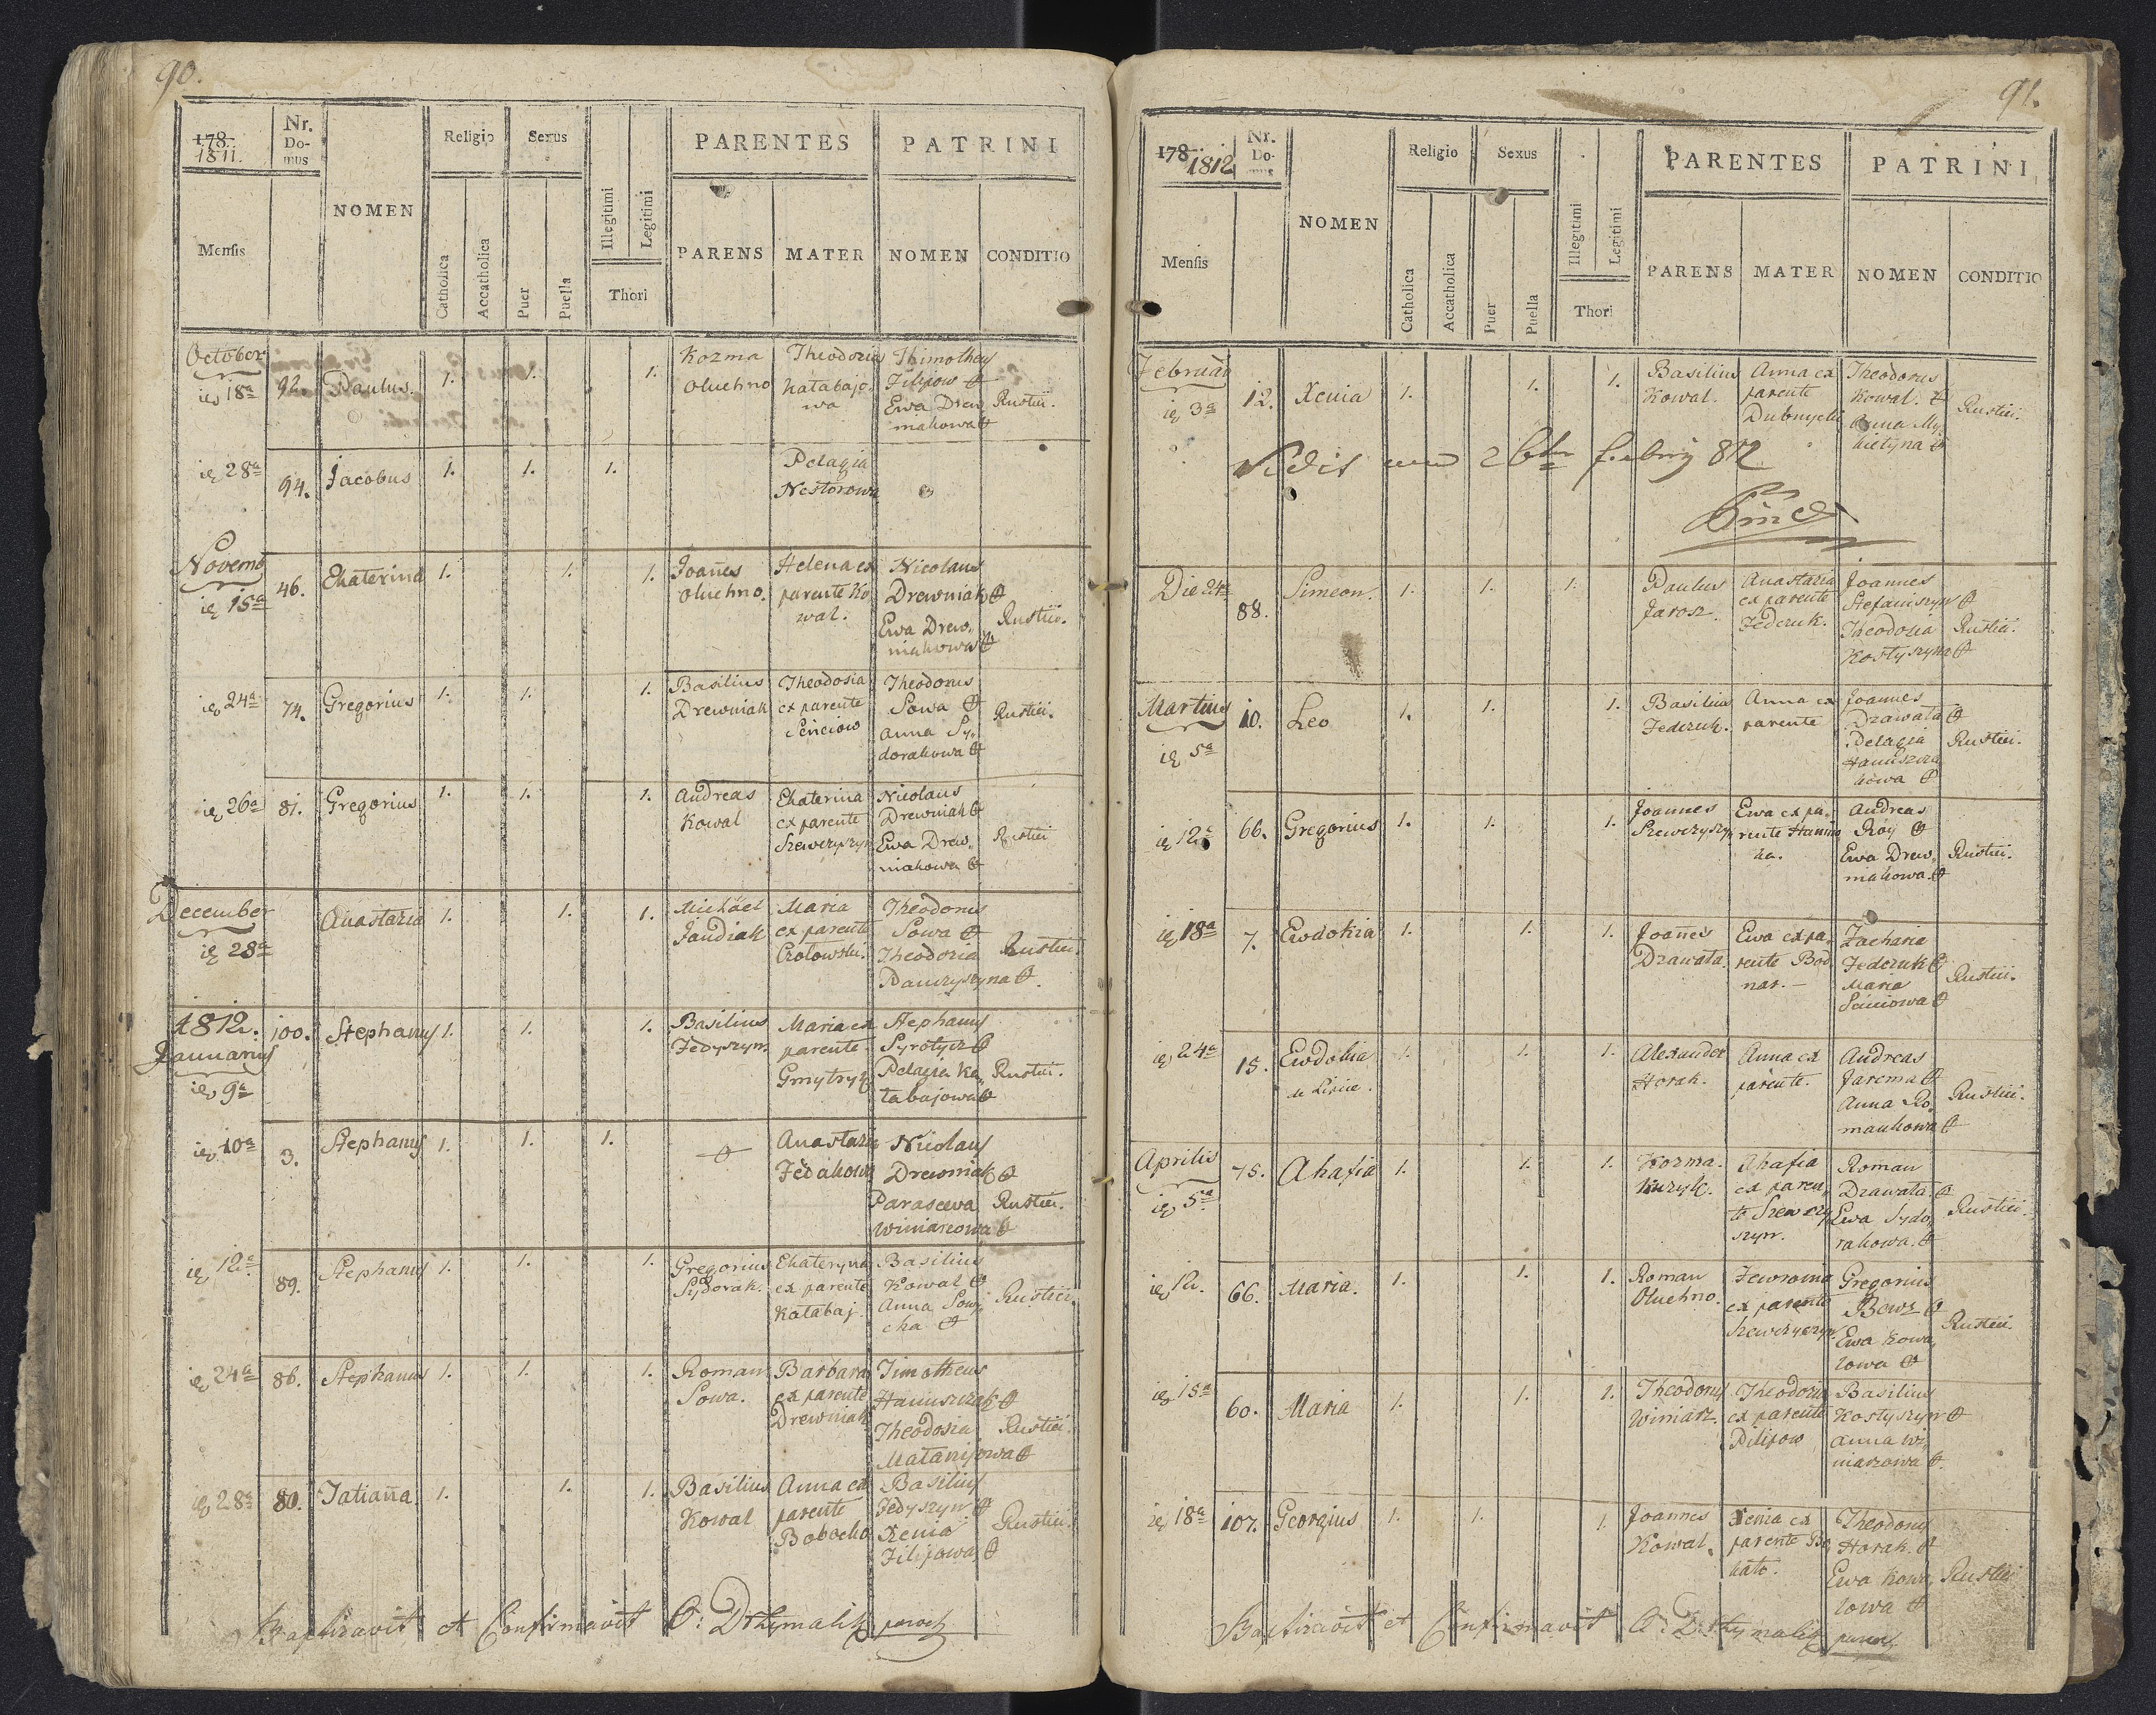 90.
178
1811.
Nr. Do-mus
NOMEN
Religio
Sexus
Illegitimi
Legitimi
PARENTES
PATRINI
Mensis
Catholica
Accatholica
Puer
Puella
Thori
PARENS
MATER
NOMEN
CONDITIO
October
18a 92. Paulus. 1. 1. 1. Kozma Oluchno Theodozia Katabajowa Thimotheus Filipow Ewa Drewniakowa Rustici.
28a 94. Jacobus 1. 1. 1. Pelagia Nestorowa
Novemb
15a 46. Ekaterina 1. 1. 1. Joannes Oluchno. Helena ex parente Kowal. Nicolaus Drewniak Ewa Drewniakowa Rustici.
24a 74. Gregorius 1. 1. 1. Basilius Drewniak Theodosia ex parente Seńciow Theodorus Sowa Anna Sydorakowa Rustici.
26a 81. Gregorius 1. 1. 1. Andreas Kowal Ekaterina ex parente Szewczyszyn Nicolaus Drewniak Ewa Drewniakowa Rustici
December
28a Anastazia 1. 1. 1. Michael Jandiak Maria ex parente Theodorus Sowa Theodozia Danczyszyna Rustici.
1812.
Januarius
9a 100. Stephanus 1. 1. 1. Basilius Fedyszyn Maria ex parente Gmytryk Stephanus Syrotycz Pelagia Katabajowa Rustici.
10a 3. Stephanus 1. 1. 1. Anastazia Fedakowa Nicolaus Drewniak Parascewa Winiarzowa Rustici.
12a 89. Stephanus 1. 1. 1. Gregorius Sydorak. Ekateryna ex parente Katabaj Basilius Kowal Anna Sowicha Rustici.
24a 86. Stephanus 1. 1. 1. Roman Sowa. Barbara ex parente Drewniak Timotheus Hanuszczak Theodosia Matanijowa Rustici.
28a 80. Tatianna. 1. 1. 1. Basilius Kowal Anna ex parente Basilius Fedyszyn Xenia Filipowa Rustici.
Baptizavit et Confirmavit paroch
91.
178
1812
Nr. Do-mus
NOMEN
Religio
Sexus
Illegitimi
Legitimi
PARENTES
PATRINI
Mensis
Catholica
Accatholica
Puer
Puella
Thori
PARENS
MATER
NOMEN
CONDITIO
Februar
3a 12. Xenia 1. 1. 1. Basilius Kowal. Anna ex parente Theodorus Kowal. Anna Mykietyna Rustici.
Vidit 812
Die 24a 88. Simeon. 1. 1. 1. Paulus Jarosz. Anastazia ex parente Fedczuk. Joannes Stefaniszyn Theodozia Kostyszyna Rustici.
Martius
5a 10. Leo 1. 1. 1. Basilius Fedczuk. Anna ex parente Joannes Dzawata Pelagia Hanuszczakowa Rustici.
12a 66. Gregorius 1. 1. 1. Joannes Szewczyszyn Ewa ex parente Andreas Roy Ewa Drewniakowa. Rustici.
18a 7. Ewdokia 1. 1. 1. Joannes Dzawata. Ewa ex parente Bodnar. Zacharia Fedczuk Maria Seńciowa Rustici.
24a 15. Ewdokia 1. 1. 1. Alexander Horak. Anna ex parente. Andreas Jarema Anna Romankowa Rustici.
Aprilis
5a 75. Ahafia 1. 1. 1. Kozma. Kuzyk. Ahafia ex parente Szewczyszyn. Roman Dzawata. Ewa Sydorakowa. Rustici.
66. Maria. 1. 1. 1. Roman Oluchno. Fewronia ex parente Szewczyszyn. Gregorius Ewa Kowalowa Rustici.
15a 60. Maria 1. 1. 1. Theodorus Winiarz. Theodozia ex parente Pilipow Basilius Kostyszyn Anna Winiarzowa
18a 107. Georgius 1. 1. 1. Joannes Kowal. Xenia ex parente Theodorus Horak. Ewa Kowalowa Rustici
Baptizavit et Confirmavit